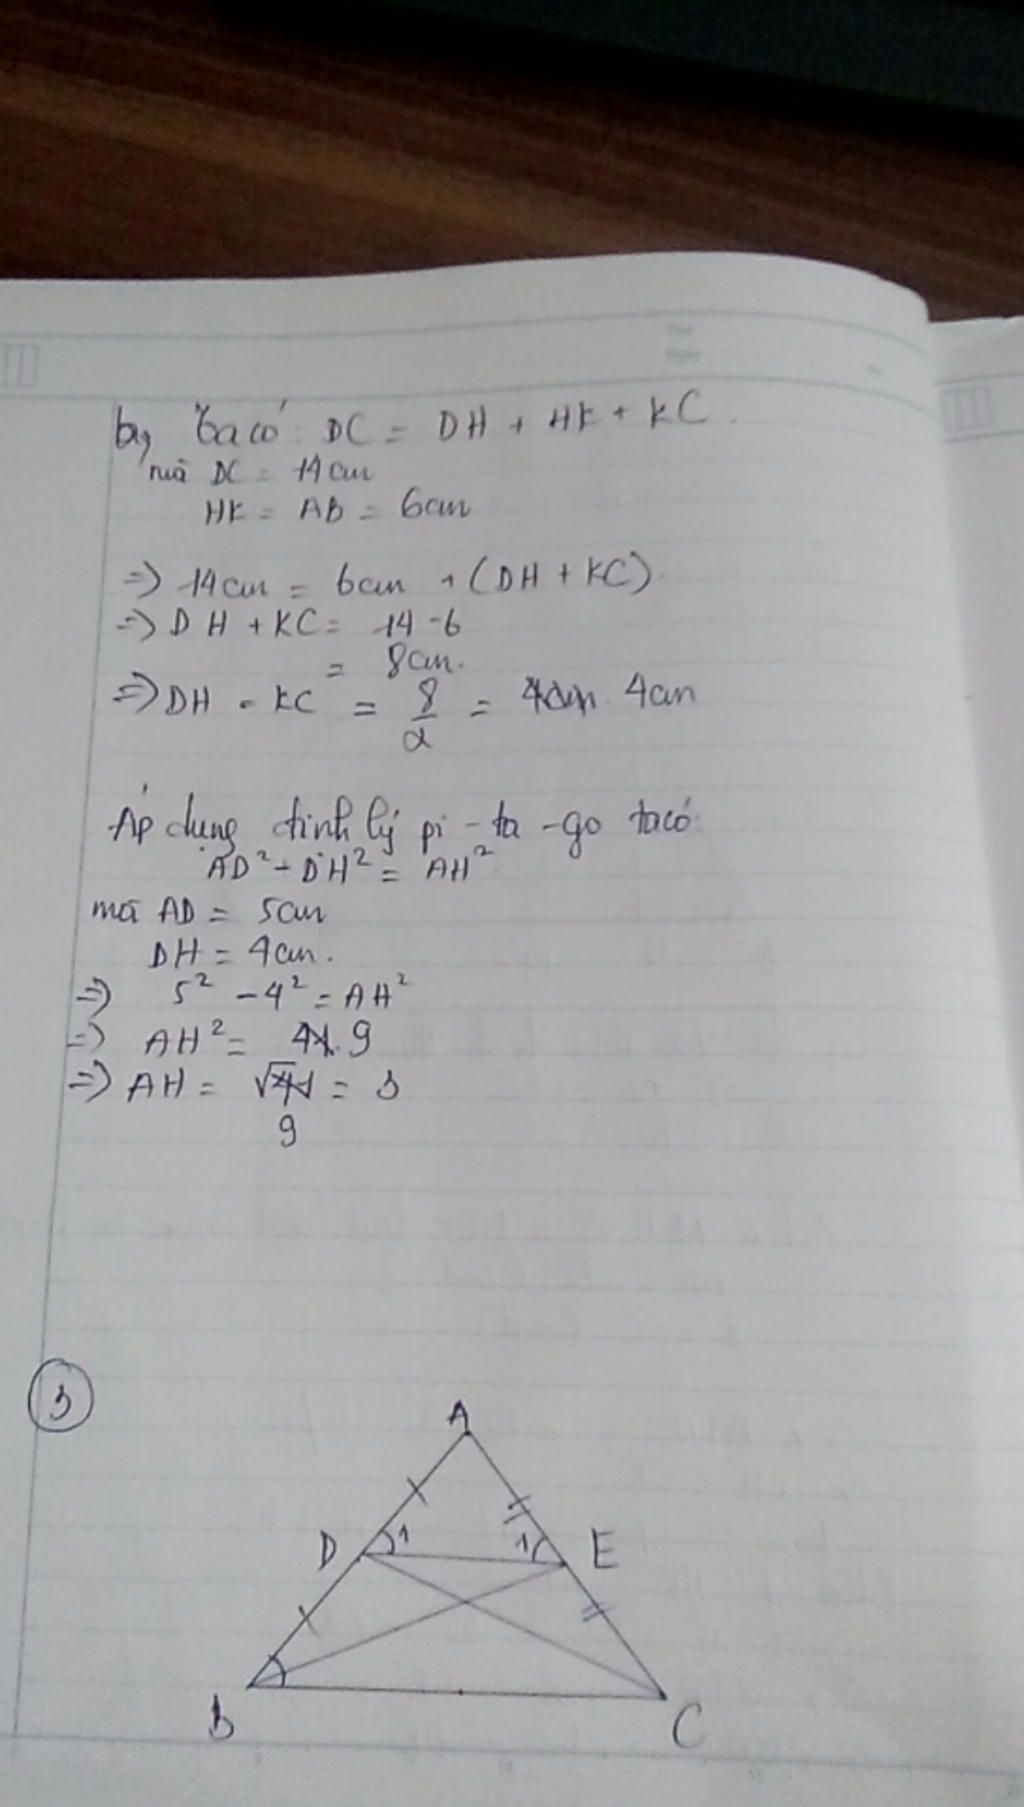 b, Ta có: DC = DH + HK + KC.
mà DC = 14cm
HK = AB = 6cm
=> 14cm = 6cm + (DH + KC).
=> DH + KC = 14 - 6
= 8cm.
=> DH = KC = 8/2 = 4cm
Áp dụng định lý pi-ta-go ta có:
AD² - DH² = AH²
mà AD = 5cm
DH = 4cm.
=> 5² - 4² = AH²
=> AH² = 9
=> AH = √9 = 3
3
A
D 1 1 E
B C